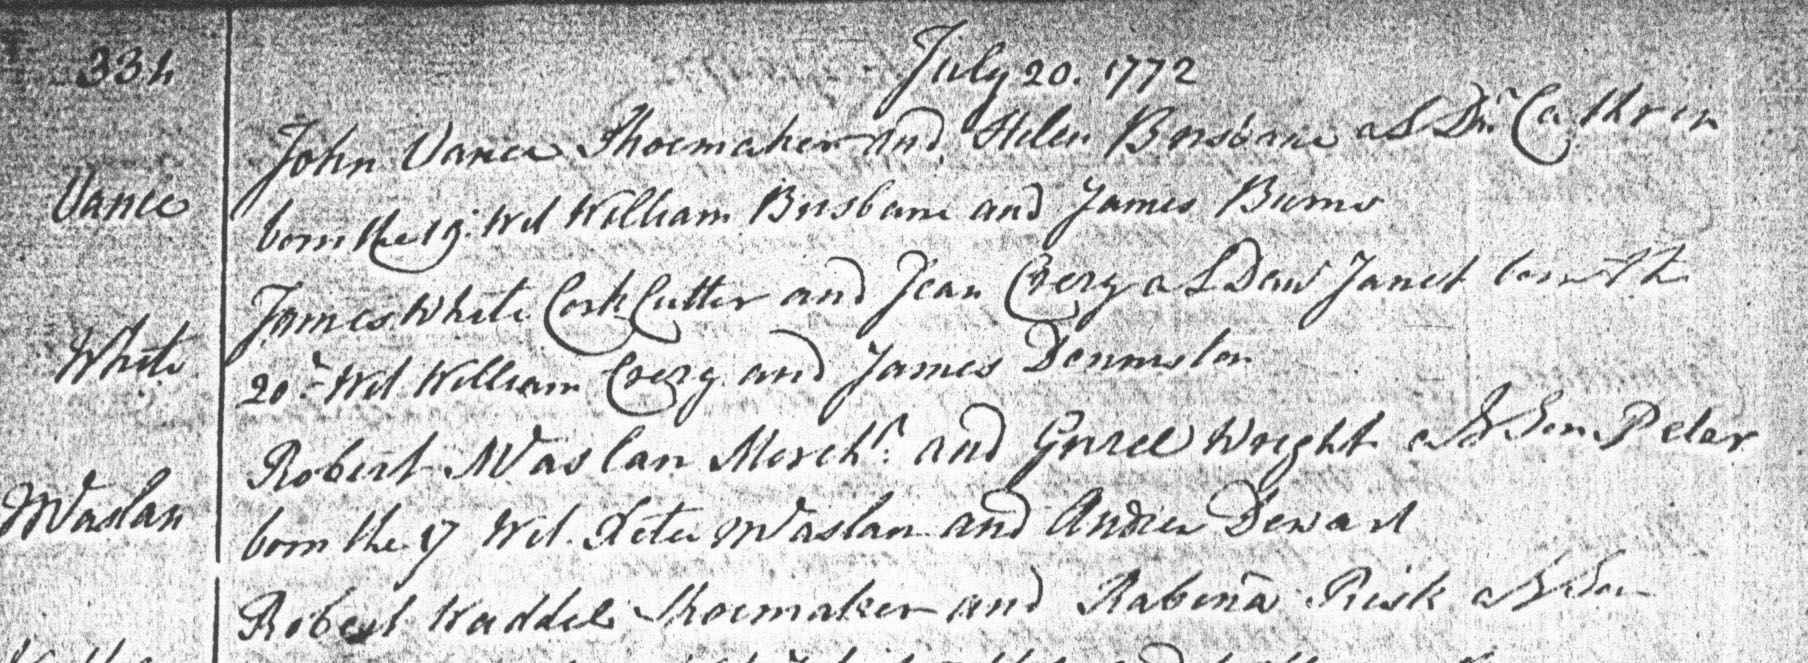 334
July 20. 1772
John Vance Shoemaker and Helen Brisbane a L Dr Cathrin
Vance
born the 19. Wit William Brisbane and James Burns
James White Cork Cutter and Jean Creig a L Daur Janet born the
White
20th Wit. William Creig and James Denniston
Robert McVaslan Mercht. and Grizel Wright a L Son Peter
McVaslan
born the 17 Wit. Peter McVaslan and Andrew Dewart
Robert Waddel Shoemaker and Rabina Risk a L Son